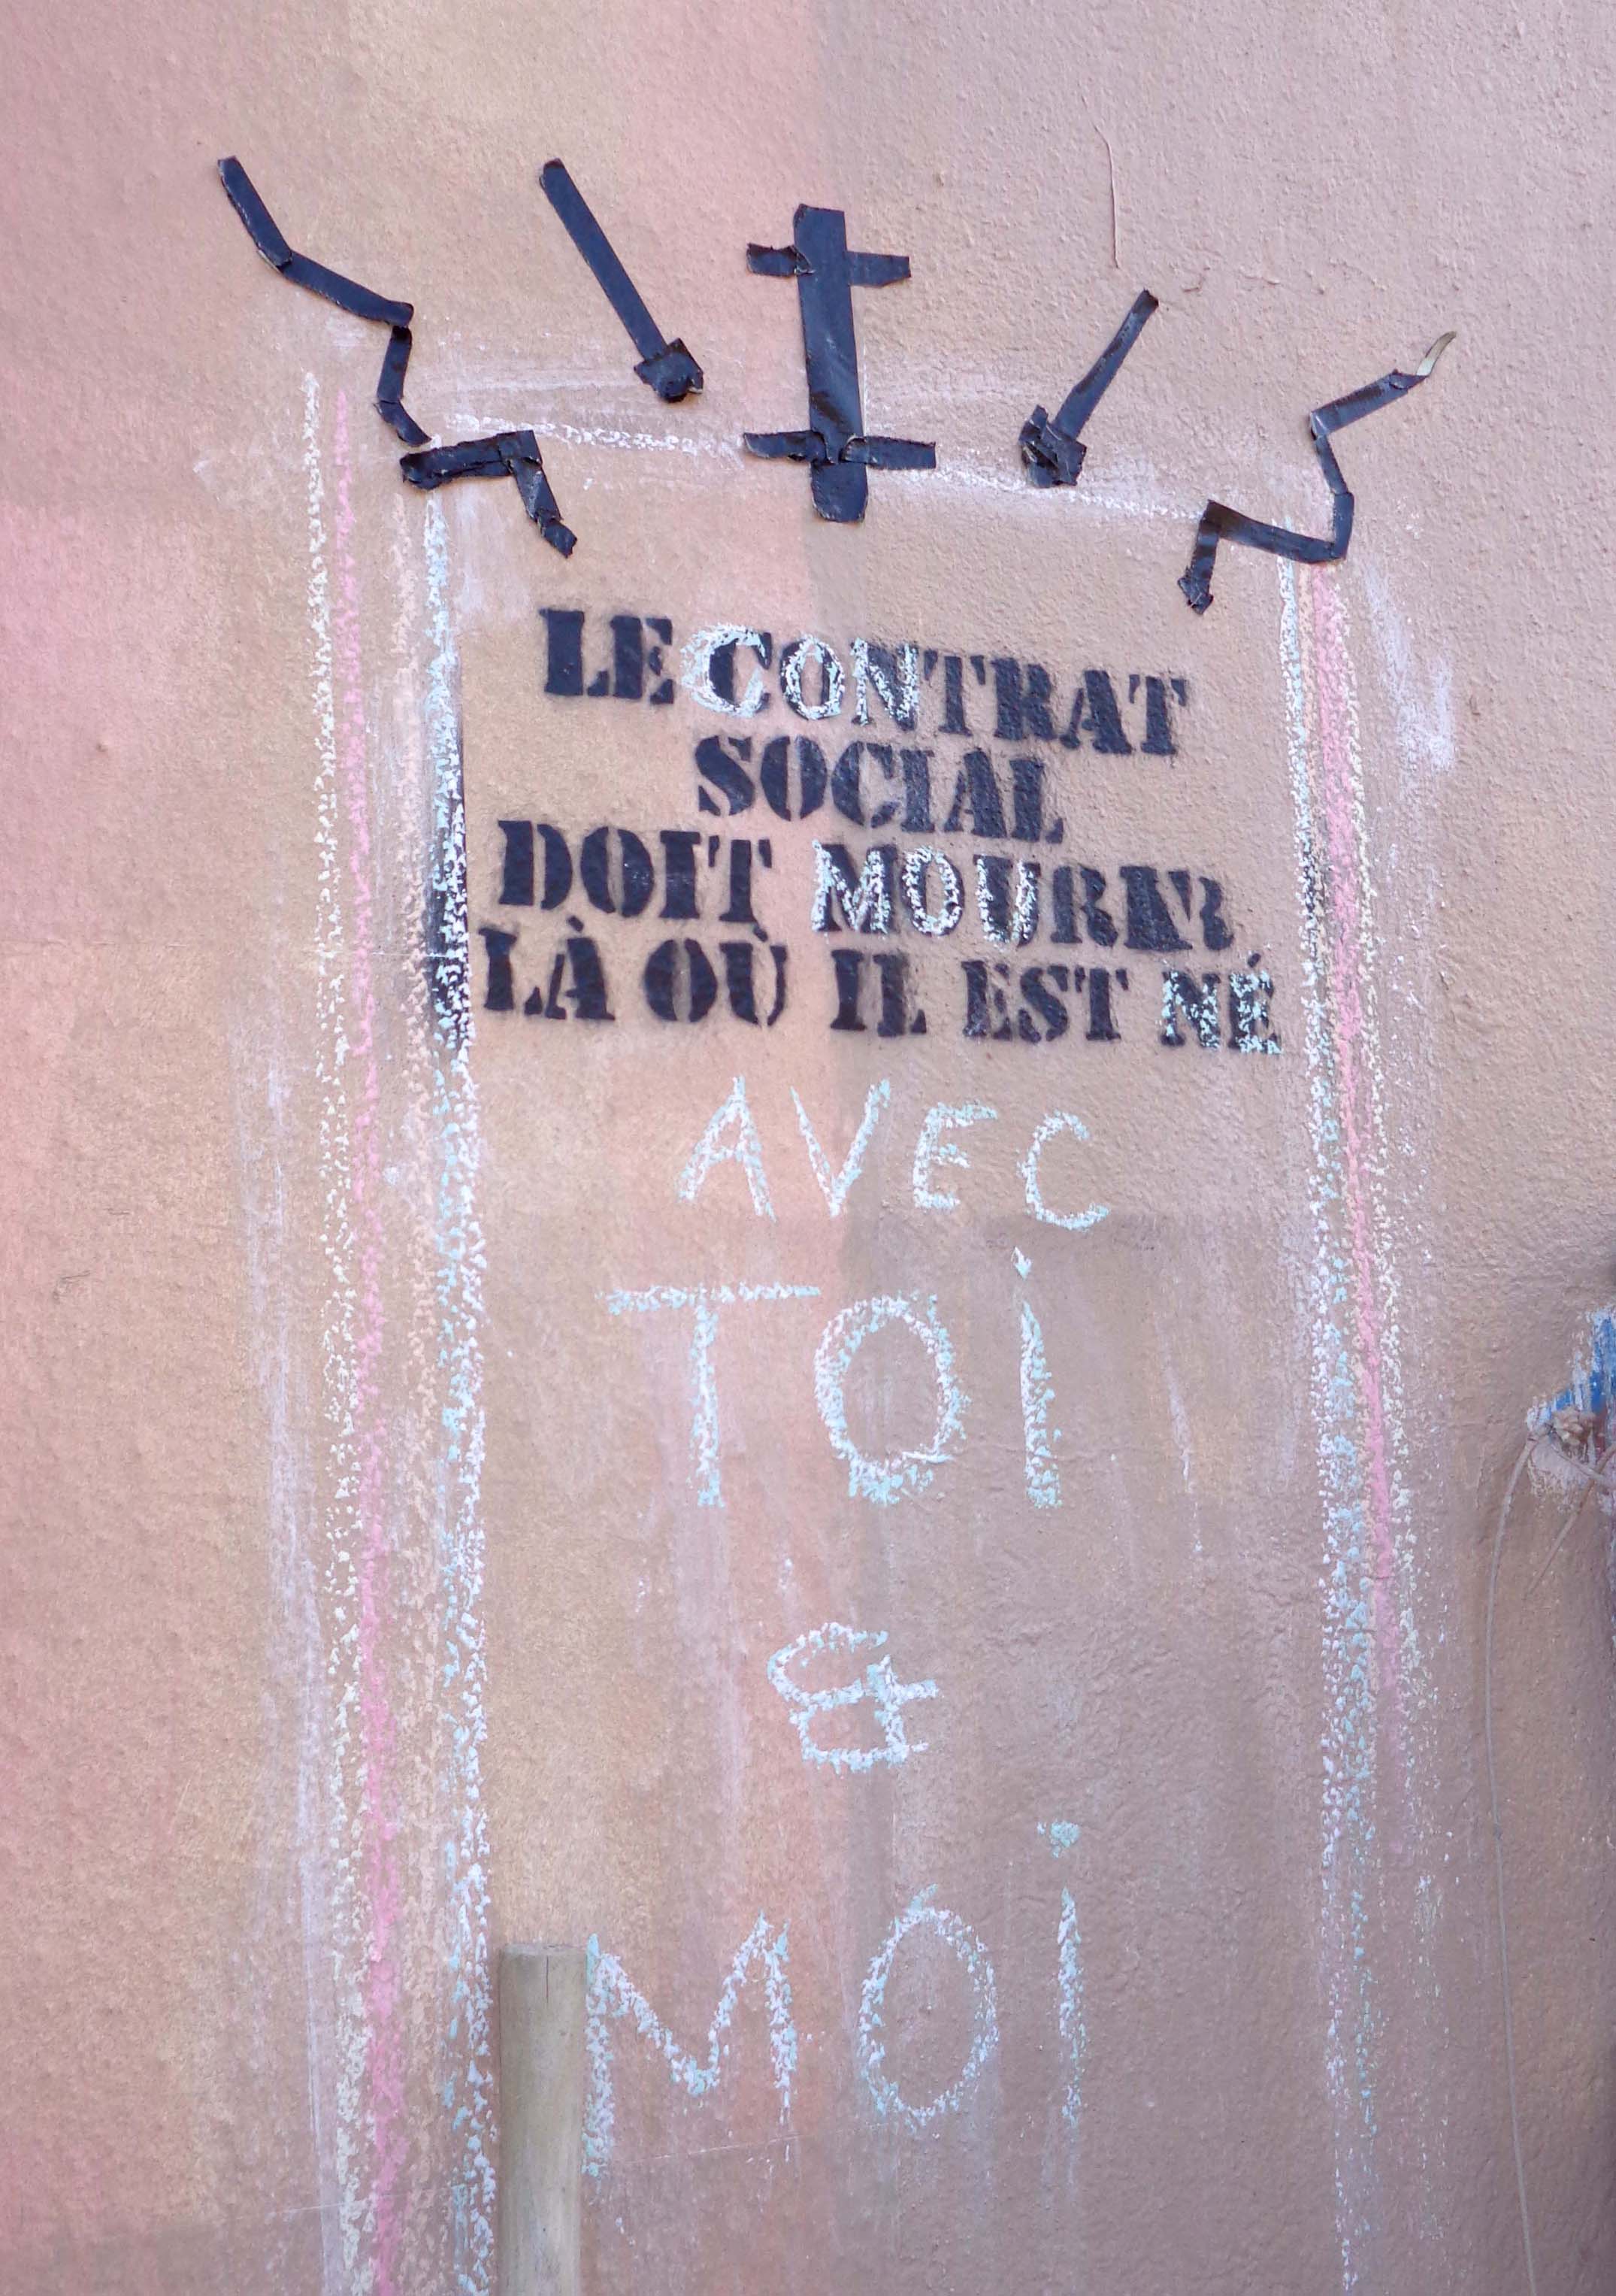 LE CONTRAT
SOCIAL
DOIT MOURIR
LÀ OÙ IL EST NÉ
AVEC
TOi
&
MOi